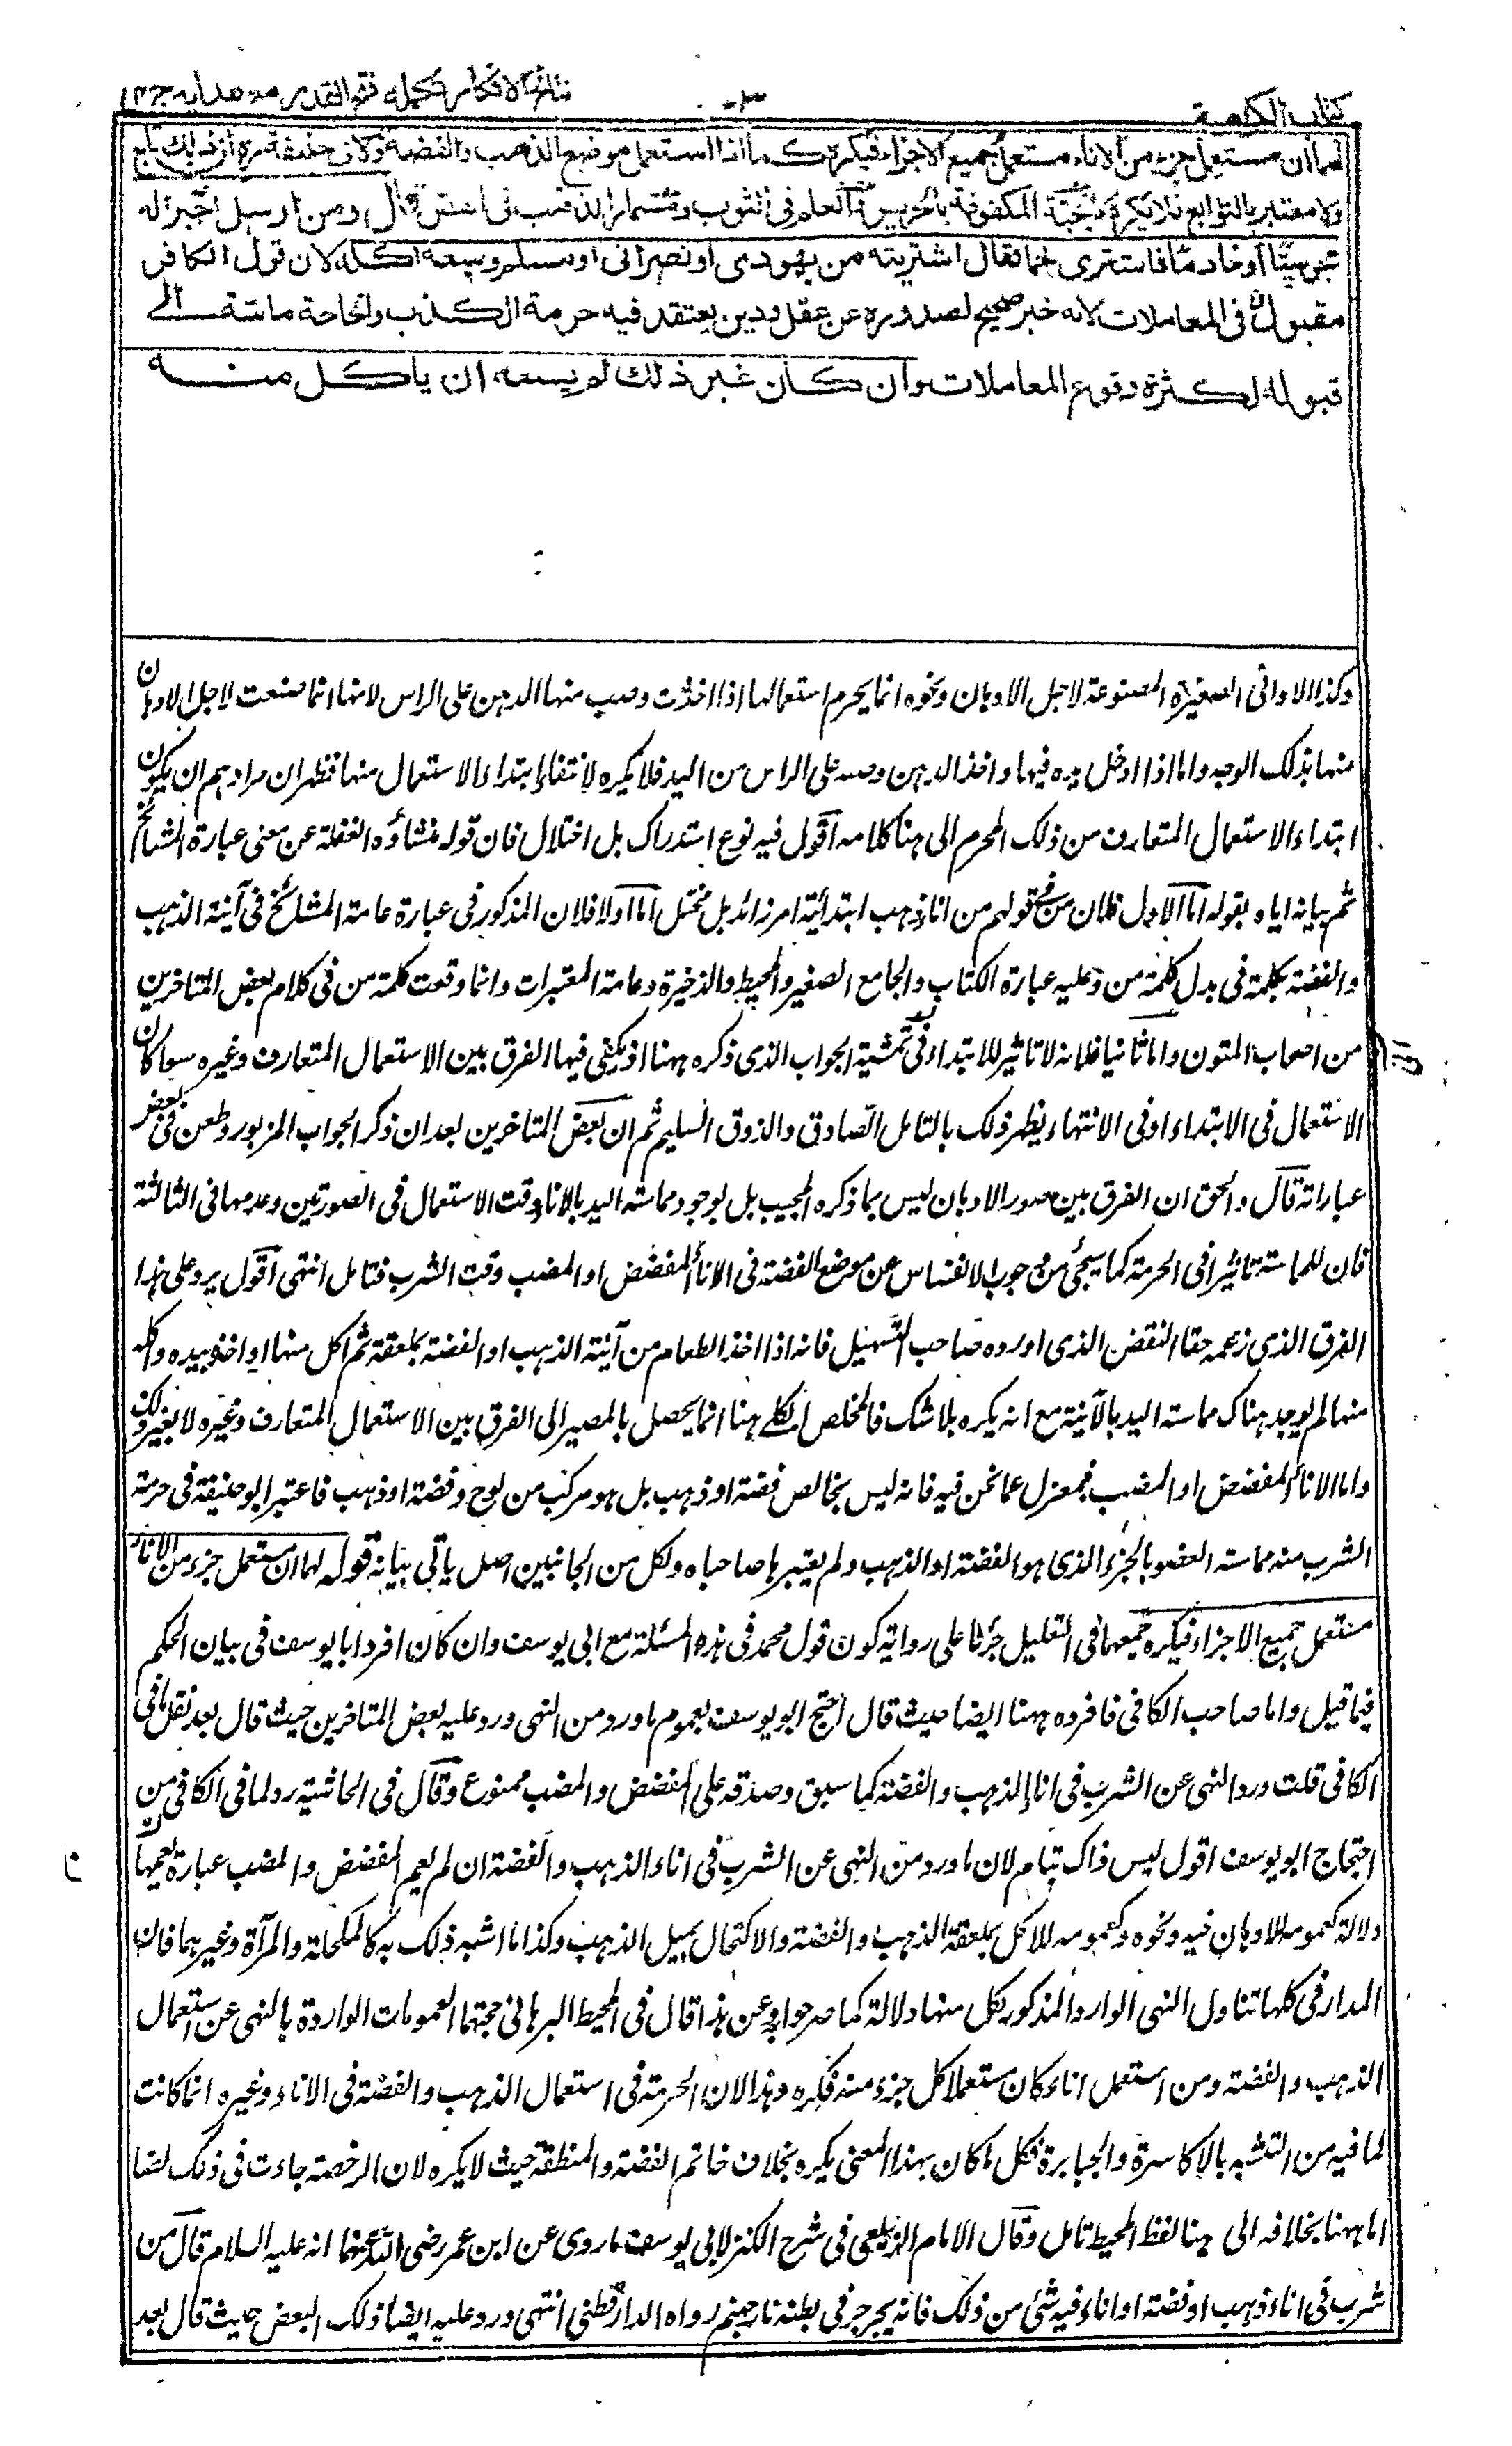 كتاب الكراهية ٣ نتائج الافكار تكملة فتح القدير مع هدايه ج ٤
لهما ان مستعمل جزء من الاناء مستعمل جميع الاجزاء فيكره كما اذا استعمل موضع الذهب والفضة ولابي حنيفة ره ان ذلك تابع
ولا معتبر بالتوابع فلا يكره كالجبة المكفوفة بالحرير والعلم في الثوب ومسمار الذهب في الفص قال ومن ارسل اجيرا له
مجوسيا او خادما فاشترى لحما فقال اشتريته من يهودي او نصراني او مسلم وسعه اكله لان قول الكافر
مقبول في المعاملات لانه خبر صحيح لصدوره عن عقل ودين يعتقد فيه حرمة الكذب والحاجة ماسة الى
قبوله لكثرة وقوع المعاملات وان كان غير ذلك لم يسعه ان ياكل منه
وكذا الاواني الصغيرة المصنوعة لاجل الادهان ونحوه انما يحرم استعمالها اذا اخذت وصب منها الدهن على الراس لانها انما صنعت لاجل الادهان
منها بذلك الوجه واما اذا ادخل يده فيها واخذ الدهن وصبه على الراس من اليد فلا يكره لانتفاء ابتداء الاستعمال منها فظهر ان مرادهم ان يكون
ابتداء الاستعمال المتعارف من ذلك المحرم الى هنا كلامه اقول فيه نوع استدراك بل اختلال فان قوله منشاؤه الغفلة عن معنى عبارة المشائخ
ثم بيانه اياه بقوله اما الاول فلان من في قولهم من اناء ذهب ابتدائية امر زائد بل مختل اما اولا فلان المذكور في عبارة عامة المشائخ في آنية الذهب
والفضة بكلمة في بدل كلمة من وعليه عبارة الكتاب والجامع الصغير والمحيط والذخيرة وعامة المعتبرات وانما وقعت كلمة من في كلام بعض المتاخرين
من اصحاب المتون واما ثانيا فلانه لا تاثير للابتداء في تمشية الجواب الذي ذكره ههنا اذ يكفي فيها الفرق بين الاستعمال المتعارف وغيره سواء كان
الاستعمال في الابتداء او في الانتهاء يظهر ذلك بالتامل الصادق والذوق السليم ثم ان بعض المتاخرين بعد ان ذكر الجواب المزبور وطعن في بعض
عباراته قال والحق ان الفرق بين صور الادهان ليس بما ذكره المجيب بل بوجود مماسة اليد بالاناء وقت الاستعمال في الصورتين وعدمها في الثالثة
فان للمماسة تاثيرا في الحرمة كما سيجئ من وجوب الانفساس عن موضع الفضة في الاناء المفضض او المضبب وقت الشرب فتامل انتهى اقول يرد على هذا
الفرق الذي زعمه حقا النقض الذي اورده صاحب التسهيل فانه اذا اخذ الطعام من آنية الذهب او الفضة بملعقة ثم اكل منها او اخذ بيده واكله
منها لم يوجد هناك مماسة اليد بالآنية مع انه يكره بلا شك فالمخلص الكلي هنا انما يحصل بالمصير الى الفرق بين الاستعمال المتعارف وغيره لا بغير ذلك
واما الاناء المفضض او المضبب فبمعزل عما نحن فيه فانه ليس بخالص فضة او ذهب بل هو مركب من لوح وفضة او ذهب فاعتبر ابو حنيفة في حرمة
الشرب منه مماسة العضو بالجزء الذي هو الفضة او الذهب ولم يعتبرها صاحباه ولكل من الجانبين اصل ياتي بيانه قوله لهما ان مستعمل جزء من الاناء
مستعمل جميع الاجزاء فيكره جمعهما في التعليل جريا على رواية كون قول محمد في هذه المسئلة مع ابي يوسف وان كان افرد ابا يوسف في بيان الحكم
فيما قيل واما صاحب الكافي فافرده ههنا ايضا حيث قال احتج ابو يوسف بعموم ما ورد من النهي ورد عليه بعض المتاخرين حيث قال بعد نقل ما في
الكافي قلت ورد النهي عن الشرب في اناء الذهب والفضة كما سبق وصدقه على المفضض والمضبب ممنوع وقال في الحاشية رد لما في الكافي من
احتجاج ابو يوسف اقول ليس ذاك بتام لان ما ورد من النهي عن الشرب في اناء الذهب والفضة ان لم يعم المفضض والمضبب عبارة يعمهما
دلالة كعمومه الادهان فيه ونحوه وكعمومه للاكل بملعقة الذهب والفضة والاكتحال بميل الذهب وكذا ما اشبه ذلك به كالمكحلة والمرآة وغيرهما فان
المدار في كلها تناول النهي الوارد المذكور لكل منها دلالة كما صرحوا به وعن هذا قال في المحيط البرهاني حجتهما العمومات الواردة بالنهي عن استعمال
الذهب والفضة ومن استعمل اناء كان مستعملا كل جزء منه فكره وهذا لان الحرمة في استعمال الذهب والفضة في الاناء وغيره انما كانت
لما فيه من التشبه بالاكاسرة والجبابرة فكل ما كان بهذا المعنى يكره بخلاف خاتم الفضة والمنطقة حيث لا يكره لان الرخصة جاءت في ذلك نصا
اما ههنا بخلافه الى هنا لفظ المحيط تامل وقال الامام الزيلعي في شرح الكنز لابي يوسف ما روى عن ابن عمر رضي الله عنهما انه عليه السلام قال من
شرب في اناء ذهب او فضة او اناء فيه شئ من ذلك فانه يجرجر في بطنه نار جهنم رواه الدارقطني انتهى ورد عليه ايضا ذلك البعض حيث قال بعد